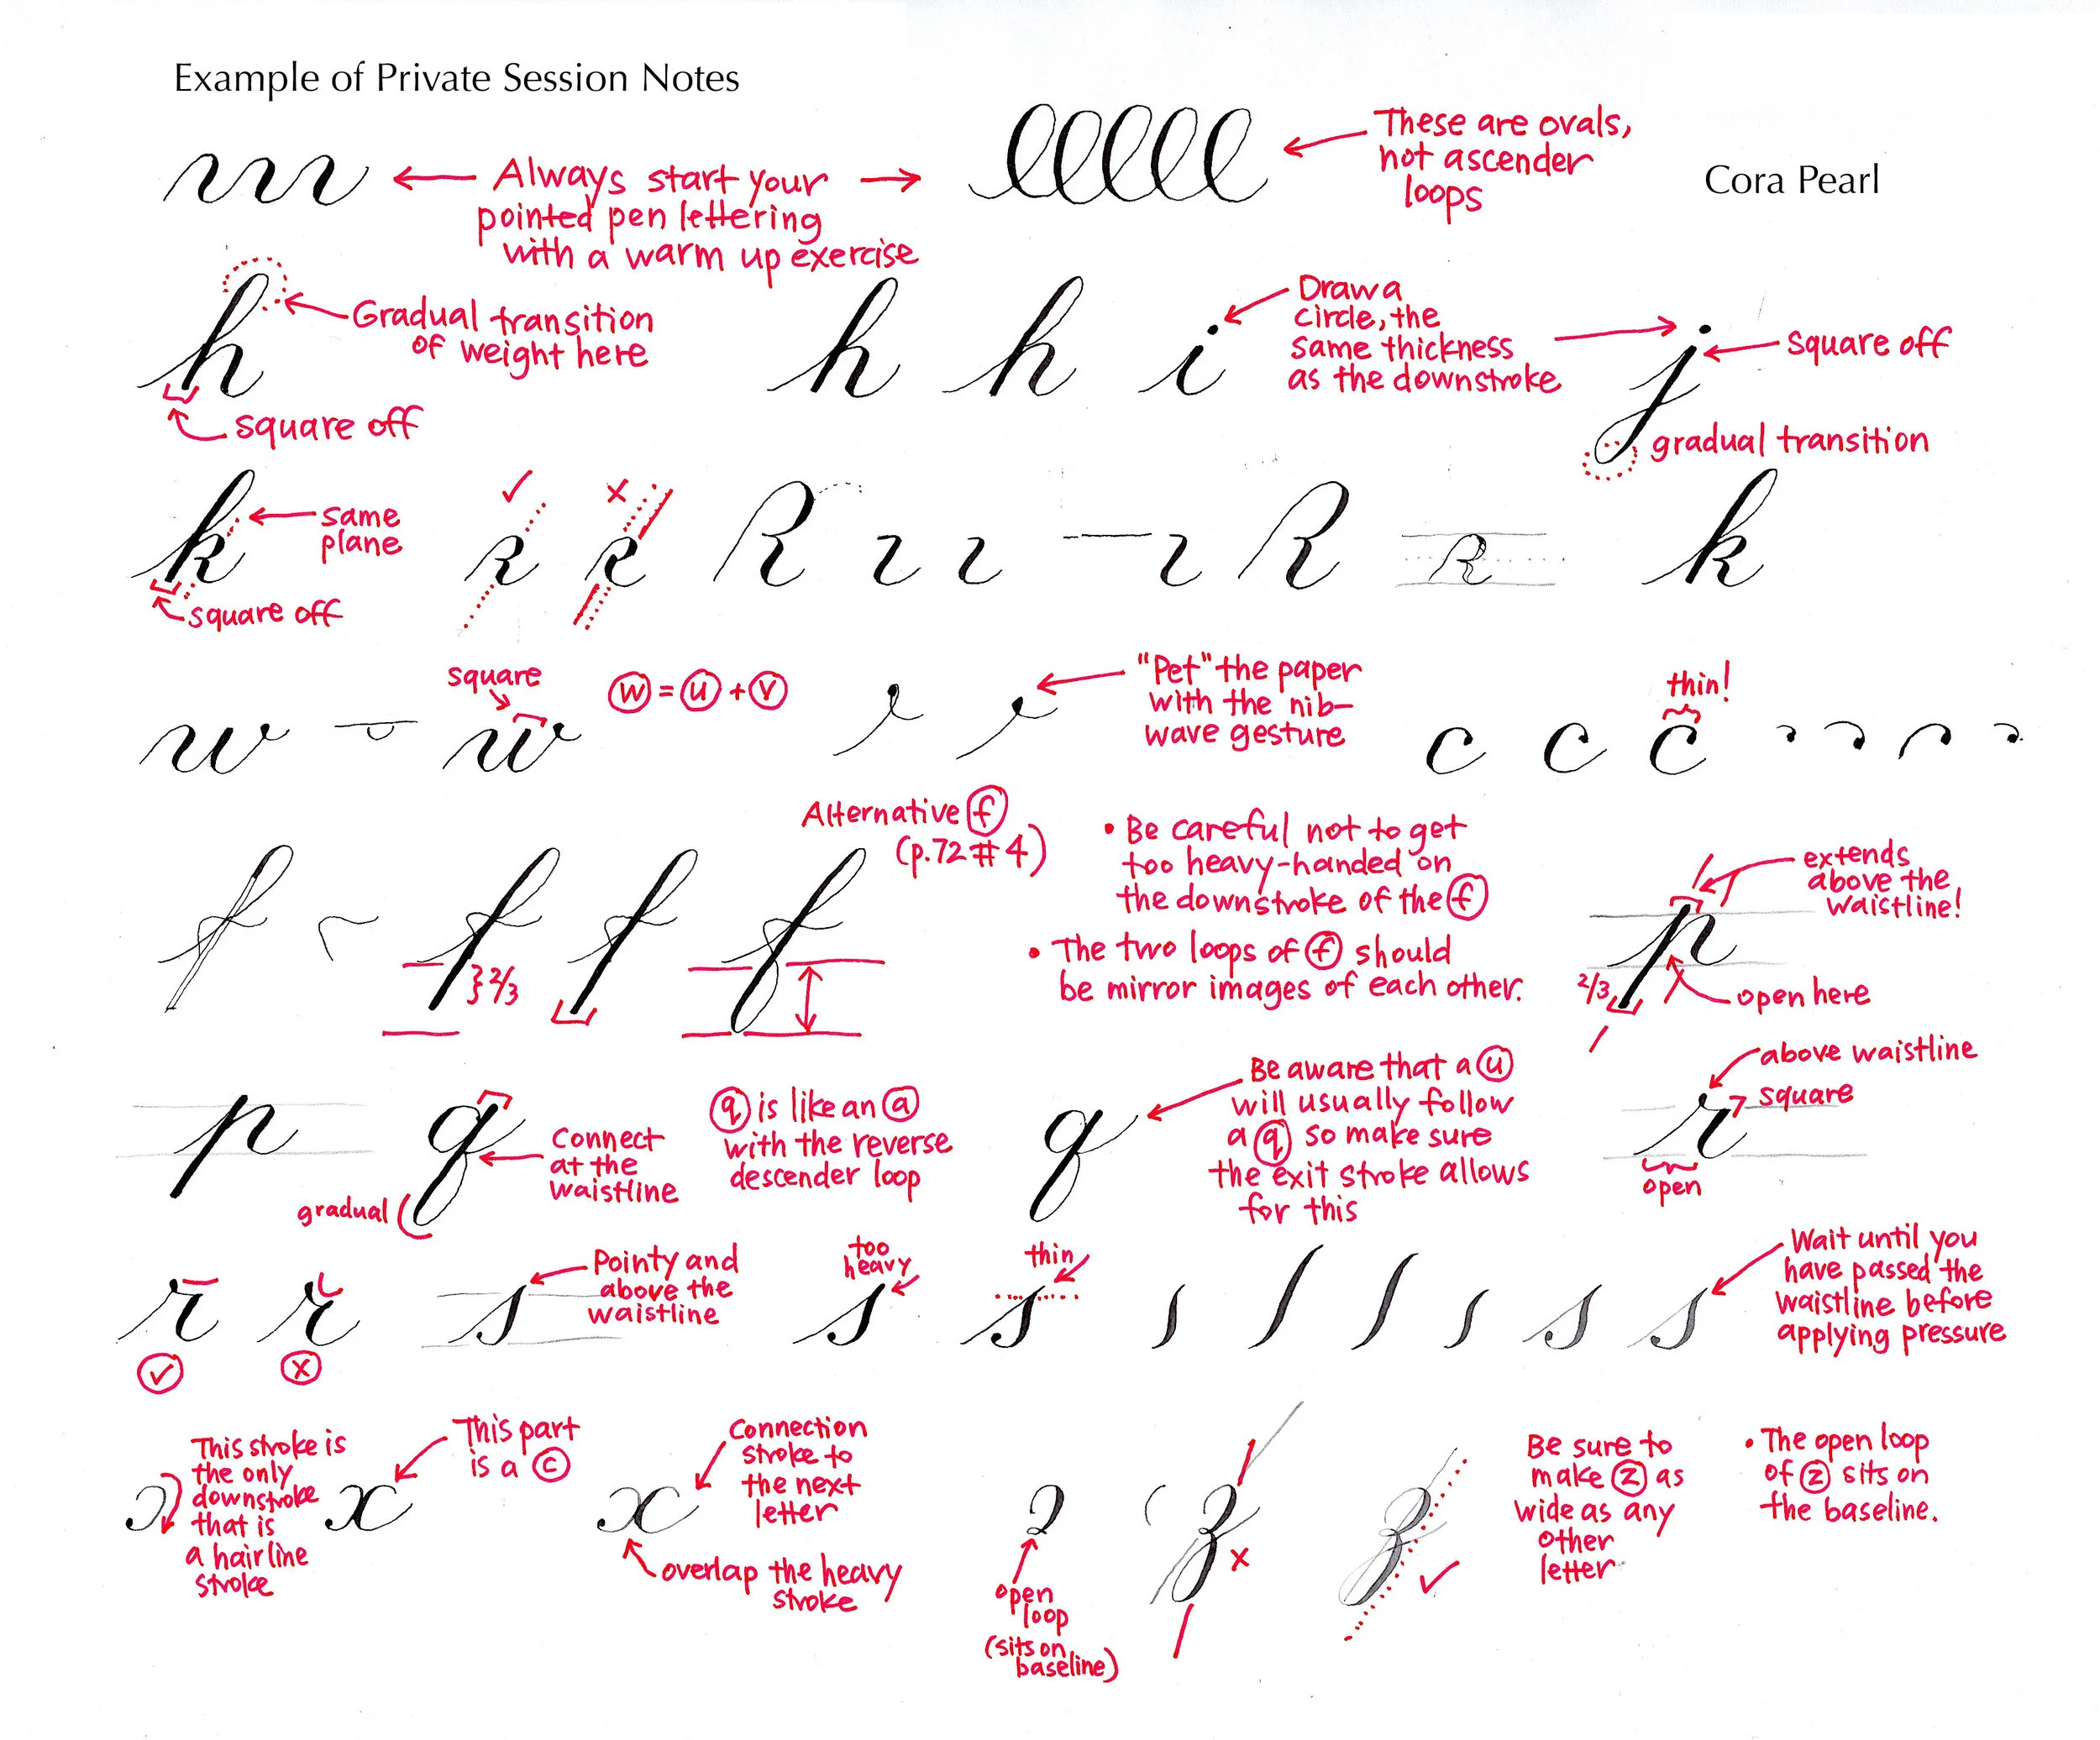 Example of Private Session Notes
Cora Pearl
Always start your
pointed pen lettering
with a warm up exercise
lllll
These are ovals,
not ascender
loops
h
Gradual transition
of weight here
square off
h h i
Draw a
circle, the
same thickness
as the downstroke
j
square off
gradual transition
k
same
plane
square off
✓
x
k
w
square
w
w = u + v
"Pet" the paper
with the nib-
wave gesture
c c c
thin!
f f f f
2/3
Alternative f
(p.72 #4)
• Be careful not to get
too heavy-handed on
the downstroke of the f
• The two loops of f should
be mirror images of each other.
p
extends
above the
waistline!
2/3
open here
p q
gradual
Connect
at the
waistline
q is like an a
with the reverse
descender loop
q
Be aware that a u
will usually follow
a q so make sure
the exit stroke allows
for this
r
above waistline
square
open
r r
✓ x
s
Pointy and
above the
waistline
s
too
heavy
s
thin
s s
Wait until you
have passed the
waistline before
applying pressure
This stroke is
the only
downstroke
that is
a hairline
stroke
x
This part
is a c
x
Connection
stroke to
the next
letter
overlap the heavy
stroke
open
loop
(sits on
baseline)
z
x
z
✓
Be sure to
make z as
wide as any
other
letter
• The open loop
of z sits on
the baseline.